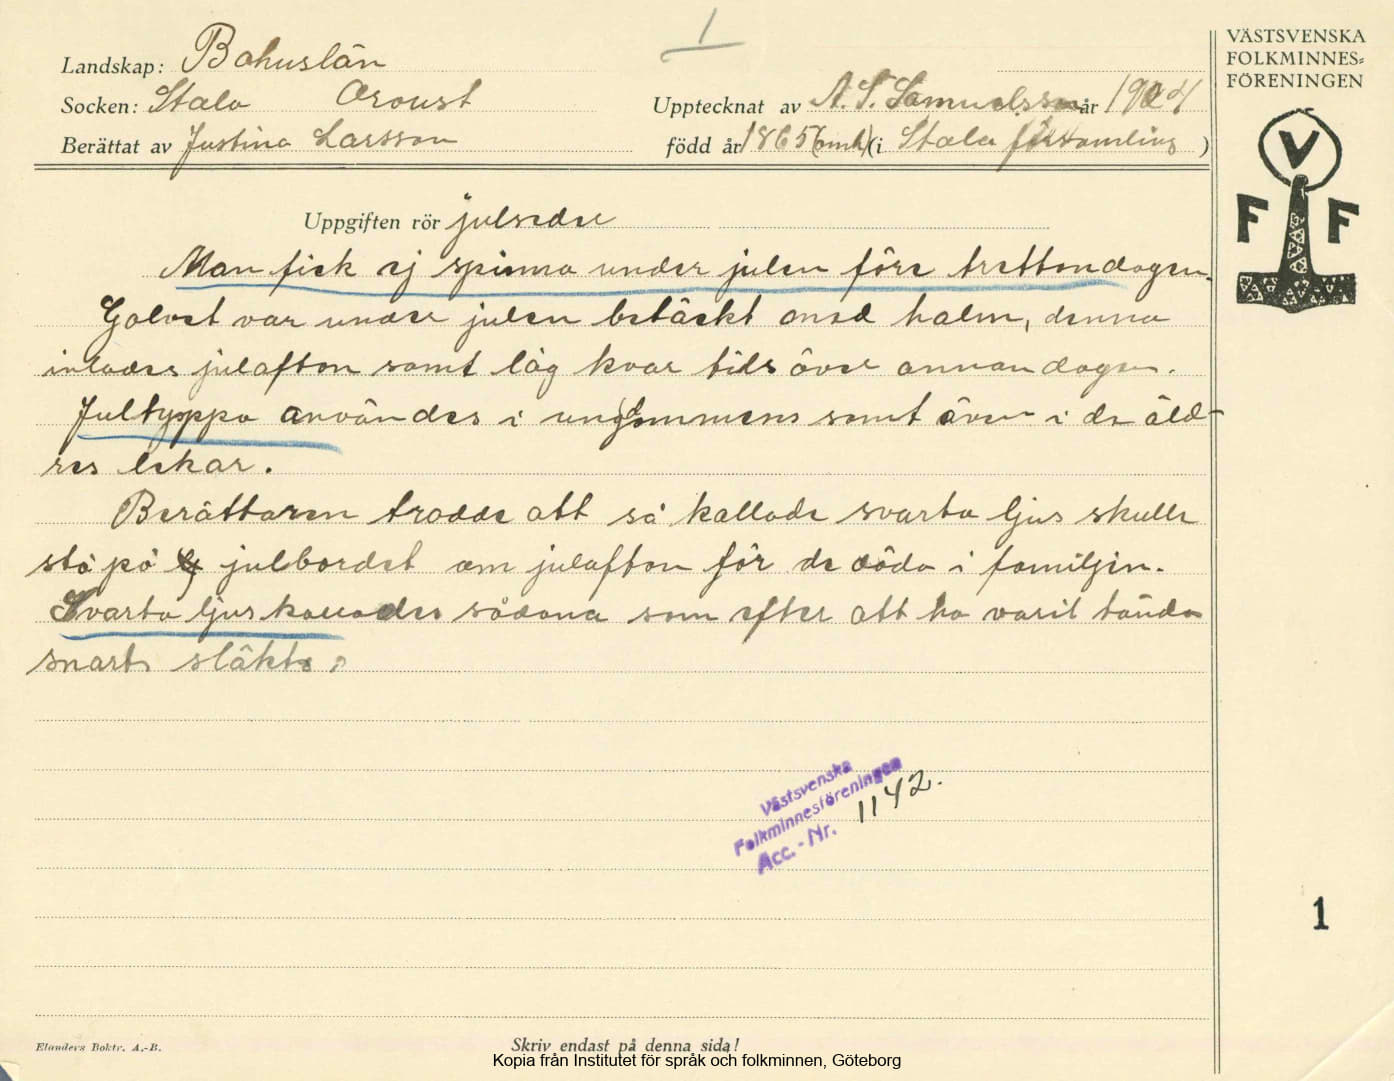 1
VÄSTSVENSKA
FOLKMINNES-
FÖRENINGEN
V F F
Landskap: Bohuslän
Socken: Stala Oroust
Upptecknat av A. S. Samuelsson år 1924
Berättat av Justina Larsson
född år 1865 (omkr) (i Stala församling )
Uppgiften rör julseder
Man fick ej spinna under julen före trettondagen.
Golvet var under julen betäckt med halm, denna
inlades julafton samt låg kvar tills över annandagen.
Jultyppa användes i ungdommens samt även i de äld-
res lekar.
Berättaren trodde att så kallade svarta ljus skulle
stå på julbordet om julafton för de döda i familjen.
Svarta ljus kallades sådana som efter att ha varit tända
snart släkts.
Västsvenska
Folkminnesföreningen
Acc.-Nr. 1142.
1
Elanders Boktr. A.-B.
Skriv endast på denna sida!
Kopia från Institutet för språk och folkminnen, Göteborg